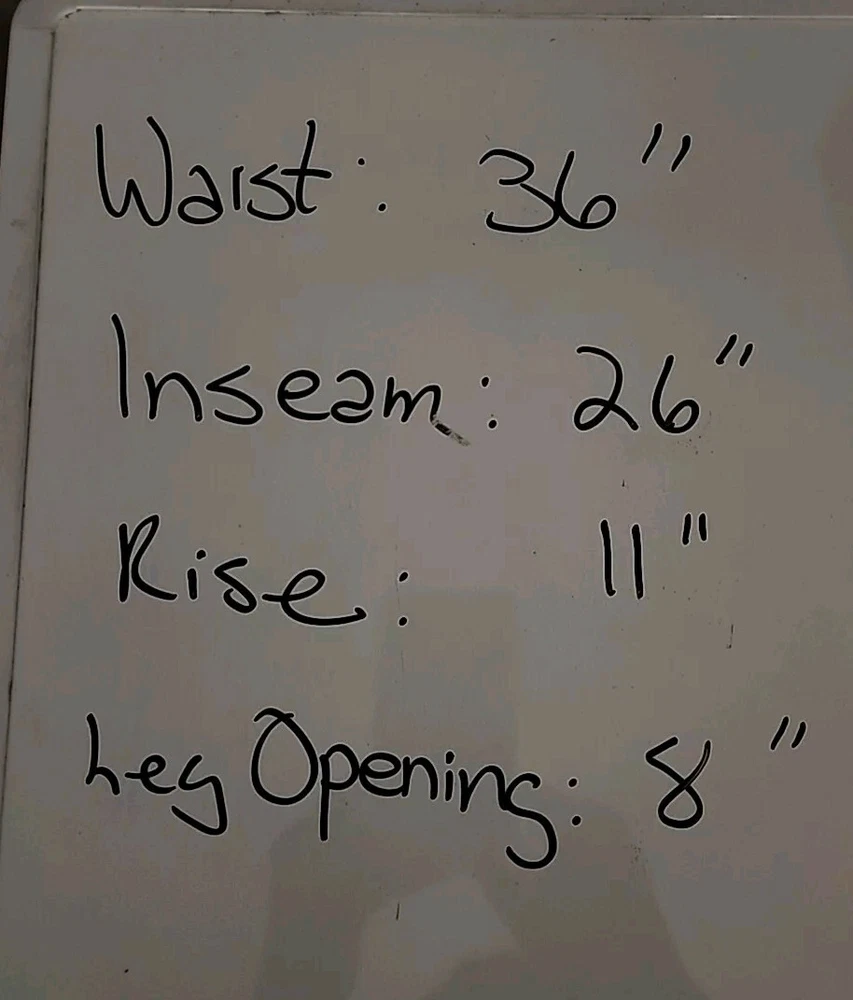 Waist: 36"
Inseam: 26"
Rise: 11"
Leg Opening: 8"